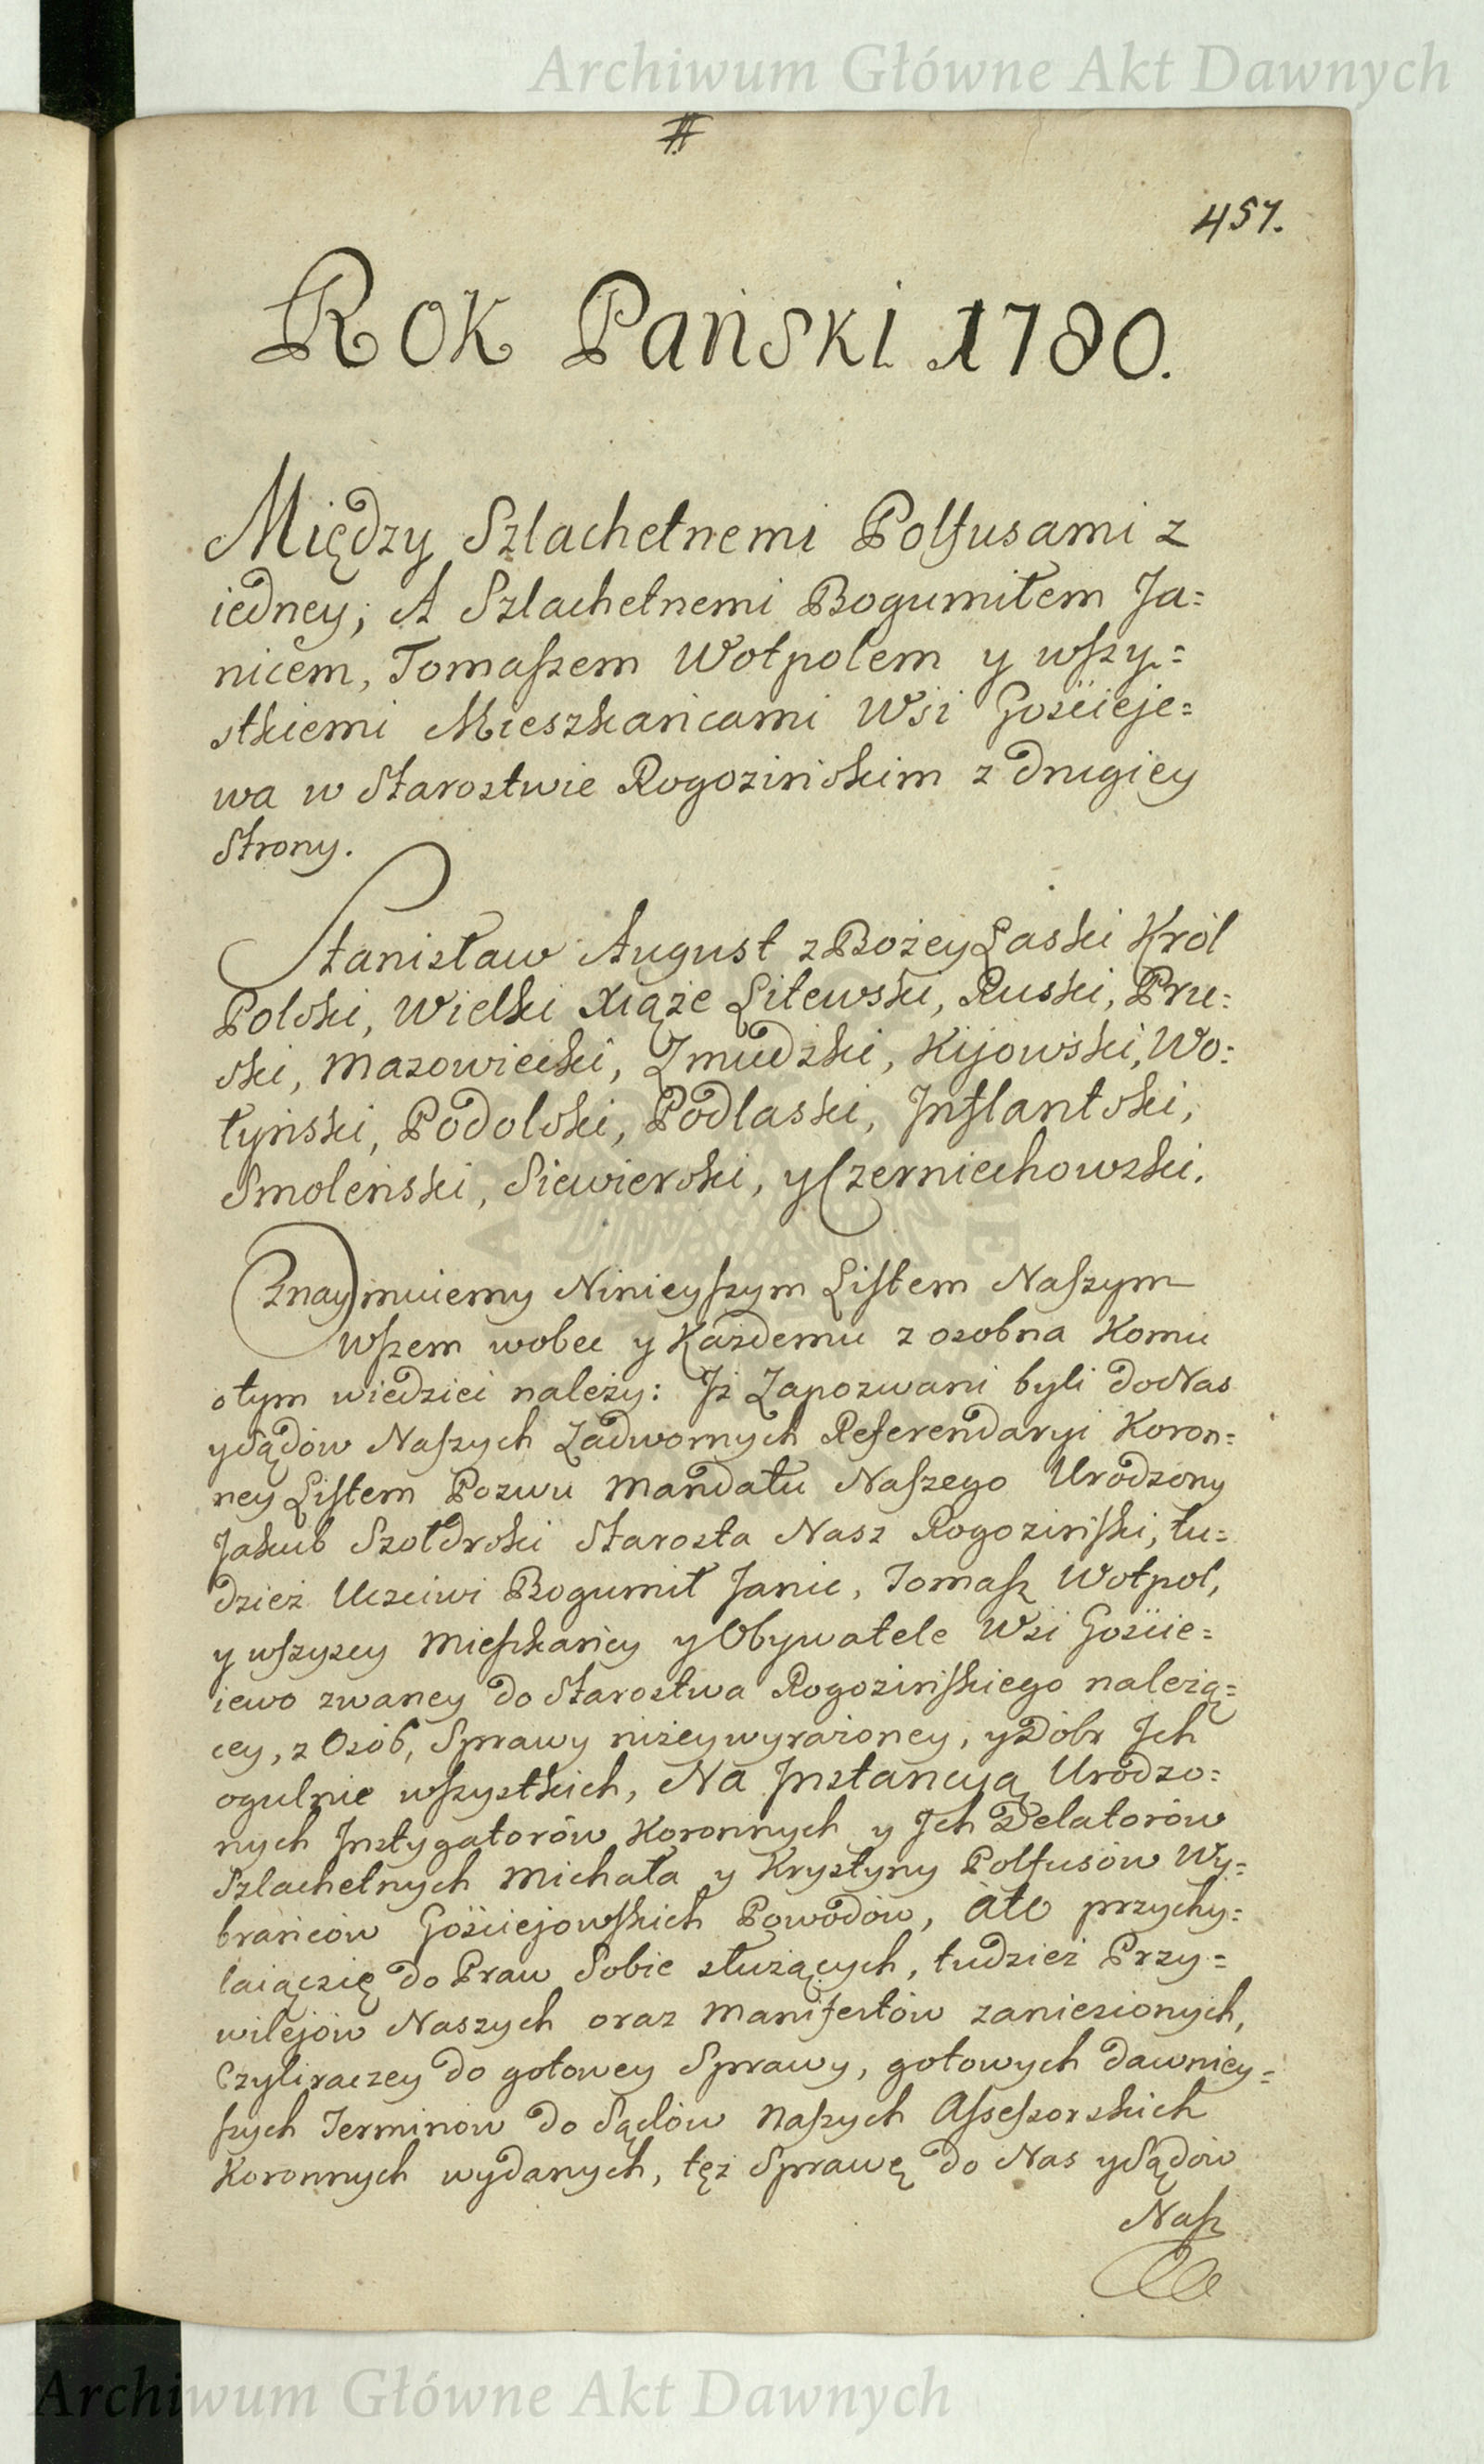 Archiwum Główne Akt Dawnych
#
457.
Rok Pański 1780.
Między Szlachetnemi Polfusami z
iedney, A Szlachetnemi Bogumiłem Ja=
nicem, Tomaszem Wołpolem y wszy=
stkiemi Mieszkańcami Wsi Gościeje=
wa w Starostwie Rogozińskim z drugiey
Strony.
Stanisław August z Bożey Łaski Król
Polski, Wielki Xiąże Litewski, Ruski, Pru=
ski, Mazowiecki, Zmudzki, Kijowski, Wo=
łyński, Podolski, Podlaski, Inflantski,
Smoleński, Siewierski, y Czerniechowski.
Oznaymuiemy Ninieyszym Listem Naszym
Wszem wobec y Każdemu z osobna Komu
o tym wiedzieć należy: Iż Zapozwani byli do Nas
y Sądów Naszych Zadwornych Referendaryi Koron=
ney Listem Pozwu Mandatu Naszego Urodzony
Jakub Szołdrski Starosta Nasz Rogoziński, tu=
dzież Uczciwi Bogumił Janic, Tomasz Wołpol,
y wszyscy Mieszkańcy y Obywatele Wsi Goście=
iewo zwaney do Starostwa Rogozińskiego należą=
cey, z Osób, Sprawy niżey wyrażoney, y Dóbr Ich
ogulnie wszystkich, Na Instancyą Urodzo=
nych Instygatorów Koronnych y Ich Delatorów
Szlachetnych Michała y Krystyny Polfusów Wy=
brańców Gościejowskich Powodów, Ato przychy=
laiąc się do Praw Sobie służących, tudzież Przy=
wilejów Naszych oraz Manifestów zaniesionych,
Czyli raczey do gotowey Sprawy, gotowych dawniey=
szych Terminów do Sądów Naszych Assessorskich
Koronnych wydanych, tęż Sprawę do Nas y Sądów
Nasz
Archiwum Główne Akt Dawnych